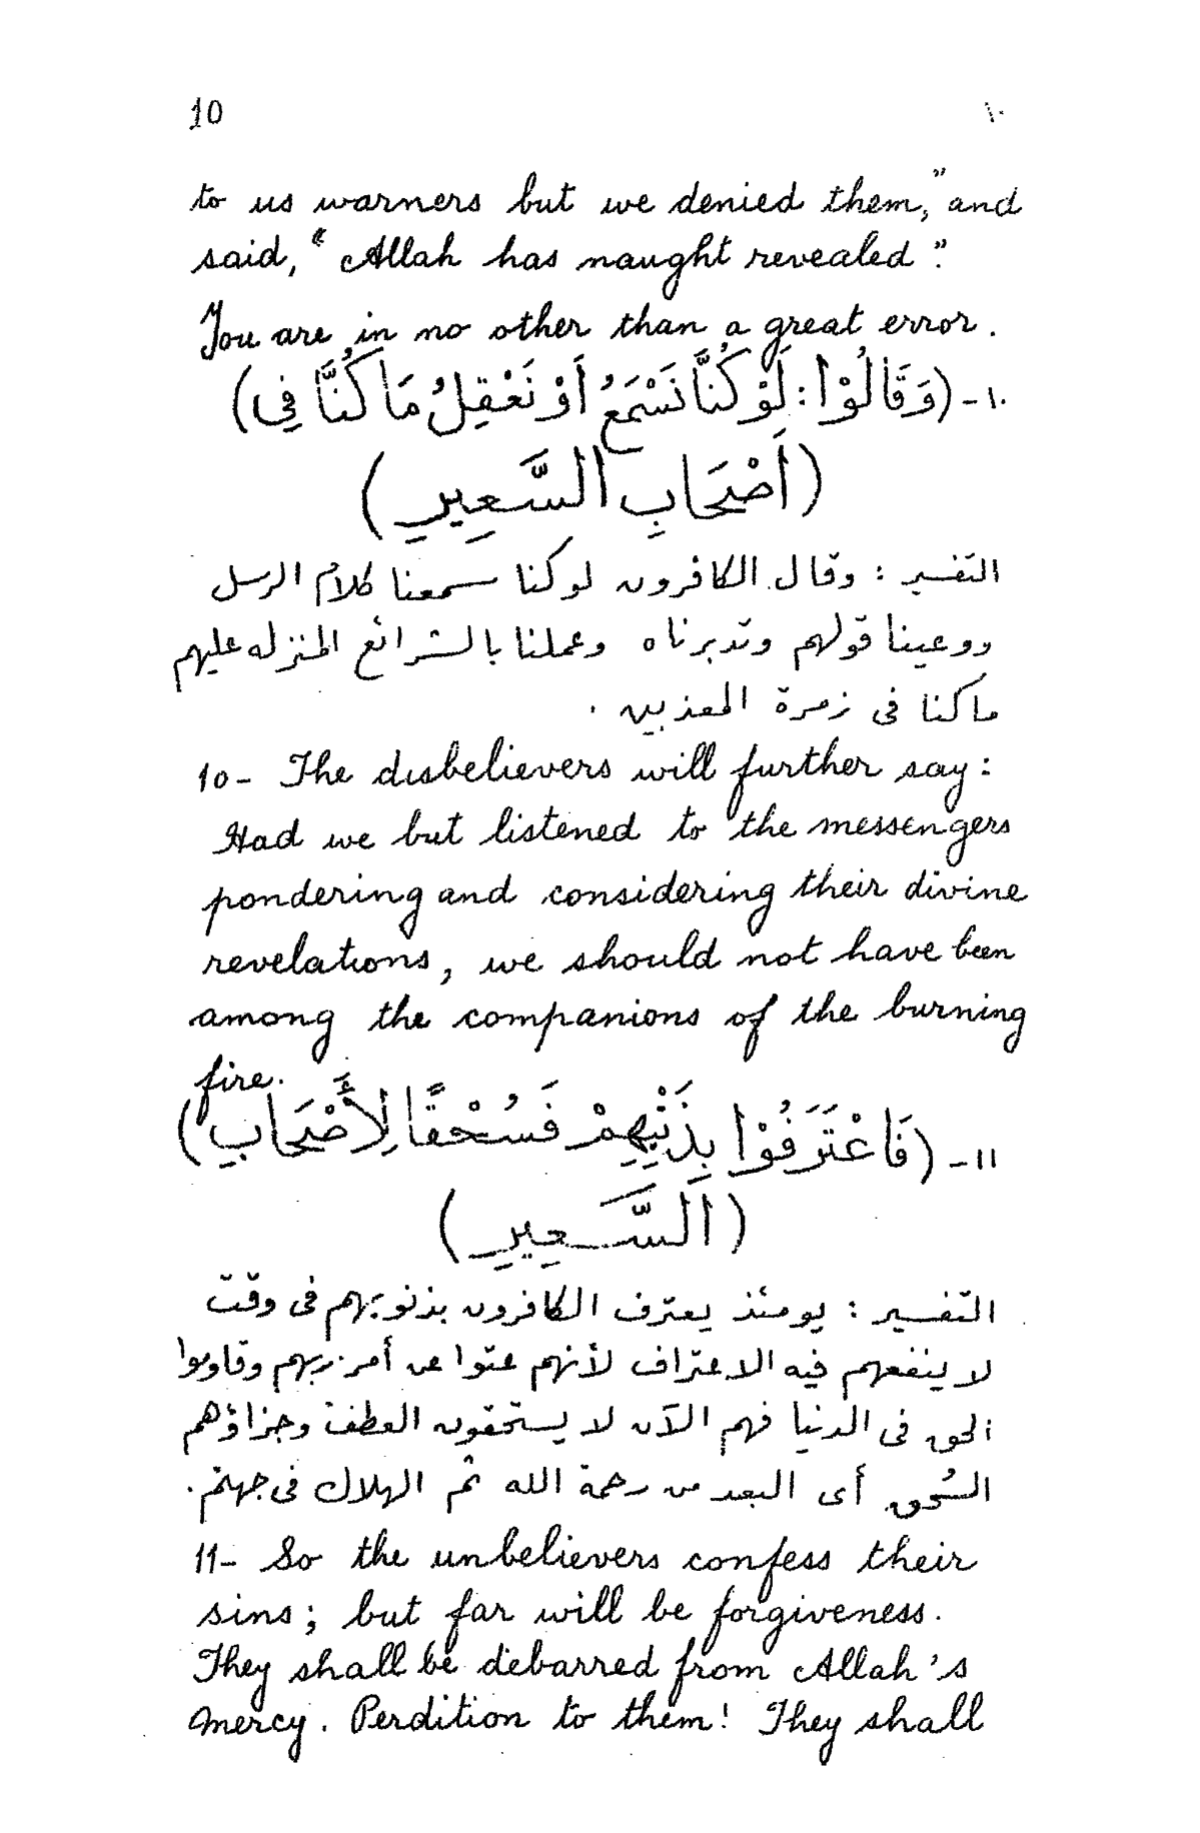 10
١٠
to us warners but we denied them," and
said, "Allah has naught revealed".
You are in no other than a great error.
١٠- (وَقَالُوْا: لَوْ كُنَّا نَسْمَعُ أَوْ نَعْقِلُ مَا كُنَّا فِي)
(أَصْحَابِ السَّعِيرِ)
التفسير : وقال الكافرون لو كنا سمعنا كلام الرسل
ووعينا قولهم وتدبرناه وعملنا بالشرائع المنزله عليهم
ما كنا فى زمرة المعذبين .
10- The disbelievers will further say:
Had we but listened to the messengers
pondering and considering their divine
revelations, we should not have been
among the companions of the burning
fire.
١١- (فَاعْتَرَفُوْا بِذَنْبِهِمْ فَسُحْقًا لِأَصْحَابِ)
(السَّعِيرِ)
التفسير : يومئذ يعترف الكافرون بذنوبهم فى وقت
لا ينفعهم فيه الاعتراف لأنهم عتوا عن أمر ربهم وقاوموا
الحق فى الدنيا فهم الآن لا يستحقون العطف وجزاؤهم
السُحق أى البعد من رحمة الله ثم الهلاك فى جهنم .
11- So the unbelievers confess their
sins; but far will be forgiveness.
They shall be debarred from Allah's
mercy. Perdition to them! They shall